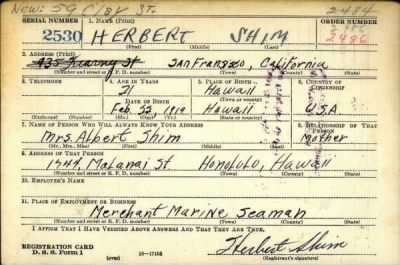 New: 59 Clay St. 2484
SERIAL NUMBER 1. NAME (Print) ORDER NUMBER
2530 HERBERT SHIM 2486
(First) (Middle) (Last)
2. ADDRESS (Print)
935 Kearny St San Francisco, California
(Number and street or R. F. D. number) (Town) (County) (State)
3. TELEPHONE 4. AGE IN YEARS 5. PLACE OF BIRTH 6. COUNTRY OF CITIZENSHIP
21 Hawaii
DATE OF BIRTH (Town or county)
Feb 1919 Hawaii U.S.A.
(Exchange) (Number) (Mo.) (Day) (Yr.) (State or country)
7. NAME OF PERSON WHO WILL ALWAYS KNOW YOUR ADDRESS 8. RELATIONSHIP OF THAT PERSON
Mrs. Albert Shim Mother
(Mr., Mrs., Miss) (First) (Middle) (Last)
9. ADDRESS OF THAT PERSON
1544 St Honolulu, Hawaii
(Number and street or R. F. D. number) (Town) (County) (State)
10. EMPLOYER'S NAME
11. PLACE OF EMPLOYMENT OR BUSINESS
Merchant Marine Seaman
(Number and street or R. F. D. number) (Town) (County) (State)
I AFFIRM THAT I HAVE VERIFIED ABOVE ANSWERS AND THAT THEY ARE TRUE.
REGISTRATION CARD
D. S. S. Form 1 16—17105 Herbert Shim
(over) (Registrant's signature)